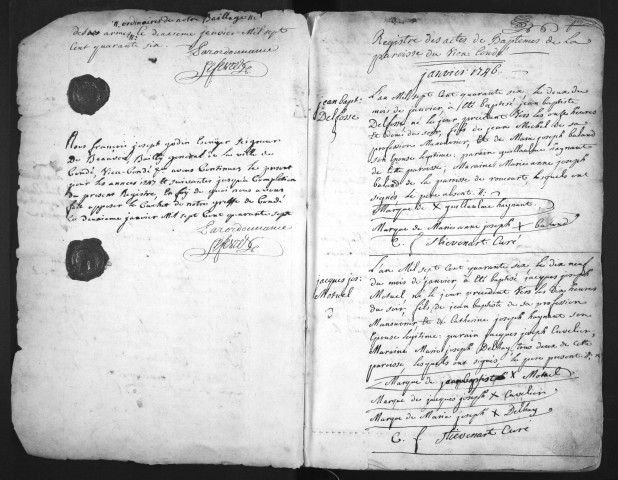 ordinaires de notre Bailliage
de nos armes le deuxieme janvier mil sept
Cent quarante six
Par ordonnance
Lefevre
Nous françois joseph godin Ecuyer Seigneur
de Beauvois Bailly general de la ville de
Condé, Vieu-Condé &c avons Continués le present
pour les années 1747 et suivantes jusqu'a Completion
du present Registre, En foy de quoi nous avons
fait apposer le Cachet de notre greffe du Condé
Le deuxieme janvier Mil sept Cent quarante sept
Par ordonnance
Lefevre
Registre des actes de Baptemes de La
paroisse du Vieu Condé
janvier 1746
jean bapt:
Delfosse
L'an Mil sept Cent quarante six le deux du
mois de janvier a êté baptisé jean baptiste
Delfosse né le jour precedent Vers les onze heures
et demi du soir, fils de jean Michel de sa
profession Manouvrier, et de Marie joseph baland
son epouse legitime: parain guillaulme haynaut
de cette paroisse; Maraine Marie anne joseph
baland de la paroisse de roucourt lesquels ont
signés le pere absent.
Marque de X guillaulme haynaut
Marque de Marie anne joseph X baland
C. f. Thievenart Curé
jacques jos:
Motuel
L'an Mil sept Cent quarante six le dix neuf
du mois de janvier a êté baptisé jacques joseph
Motuel né le jour precedent Vers les dix heures
du soir fils de jean baptiste de sa profession
Manouvrier et de Catherine joseph haynaut son
epouse legitime: parain jacques joseph Cuvelier,
Maraine Marie joseph Delhay, tous deux de cette
paroisse lesquels ont signés le pere present
Marque de jean baptiste X Motuel
Marque de jacques joseph X Cuvelier
Marque de Marie joseph X Delhay
C. f. Thievenart Curé